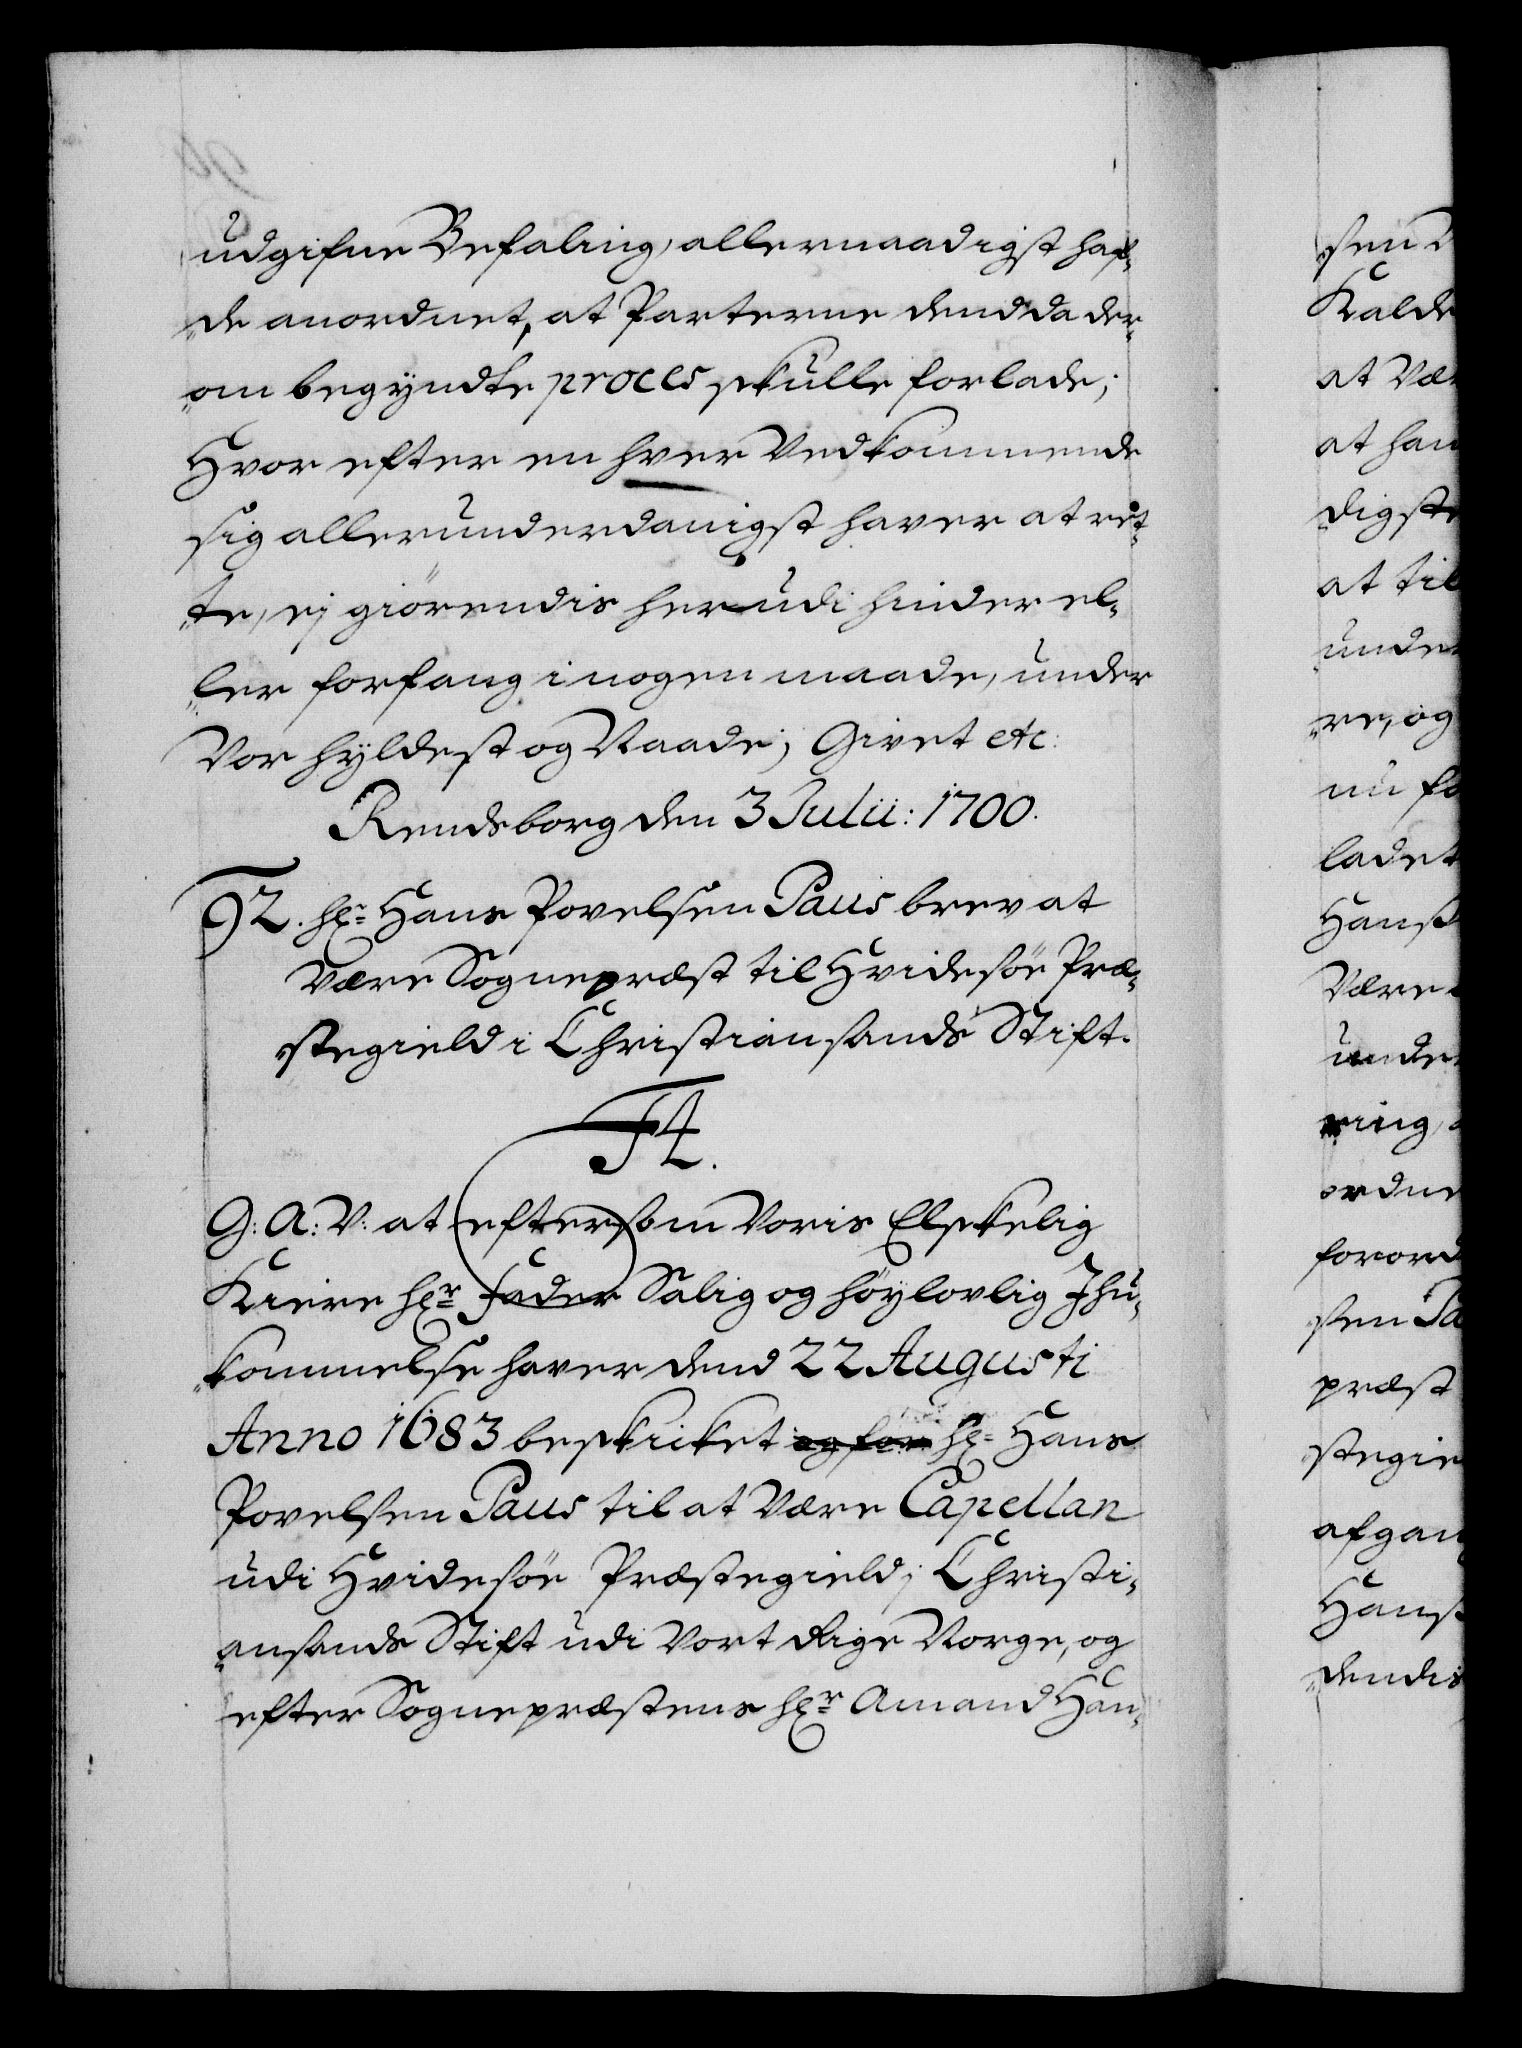 udgifne Befaling, allernaadigst haf-
de anordnet, at Parterne dend da der-
om begyndte proces skulle forlade;
Hvor efter en hver Vedkommende
sig allerunderdanigst haver at ret-
te, ej giörendis her udi hinder el-
ler forfang i nogen maade, under
Vor hyldest og Naade; Givet etc:
Rendsborg den 3 Julii: 1700.
92. Hr: Hans Povelsen Paus brev at
være Sognepræst til Hvidesöe Præ-
stegield i Christiansands Stift.
F4.
G: A: V: at eftersom Voris Elskelig
Kiere Hr: Fader Salig og höylovlig Ihu-
kommelse haver dend 22 Augusti
Anno 1683 beskicket og for Hr: Hans
Povelsen Paus til at være Capellan
udi Hvidesöe Præstegield i Christi-
ansands Stift udi Vort Rige Norge, og
efter Sognepræstens Hr: Amand Han-
sen
Kalde
at Væ
at han
digste
at til
under
re, og
nu fo
ladet
Hans
Være
unde
ring,
ordne
forord
sen Pa
præst
stegie
afgan
Hans
dendis